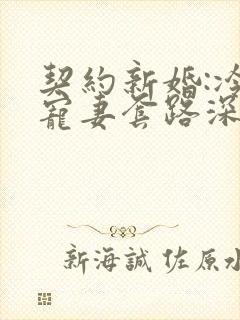 契約新婚:冷
寵妻套路深
新海誠 佐原水